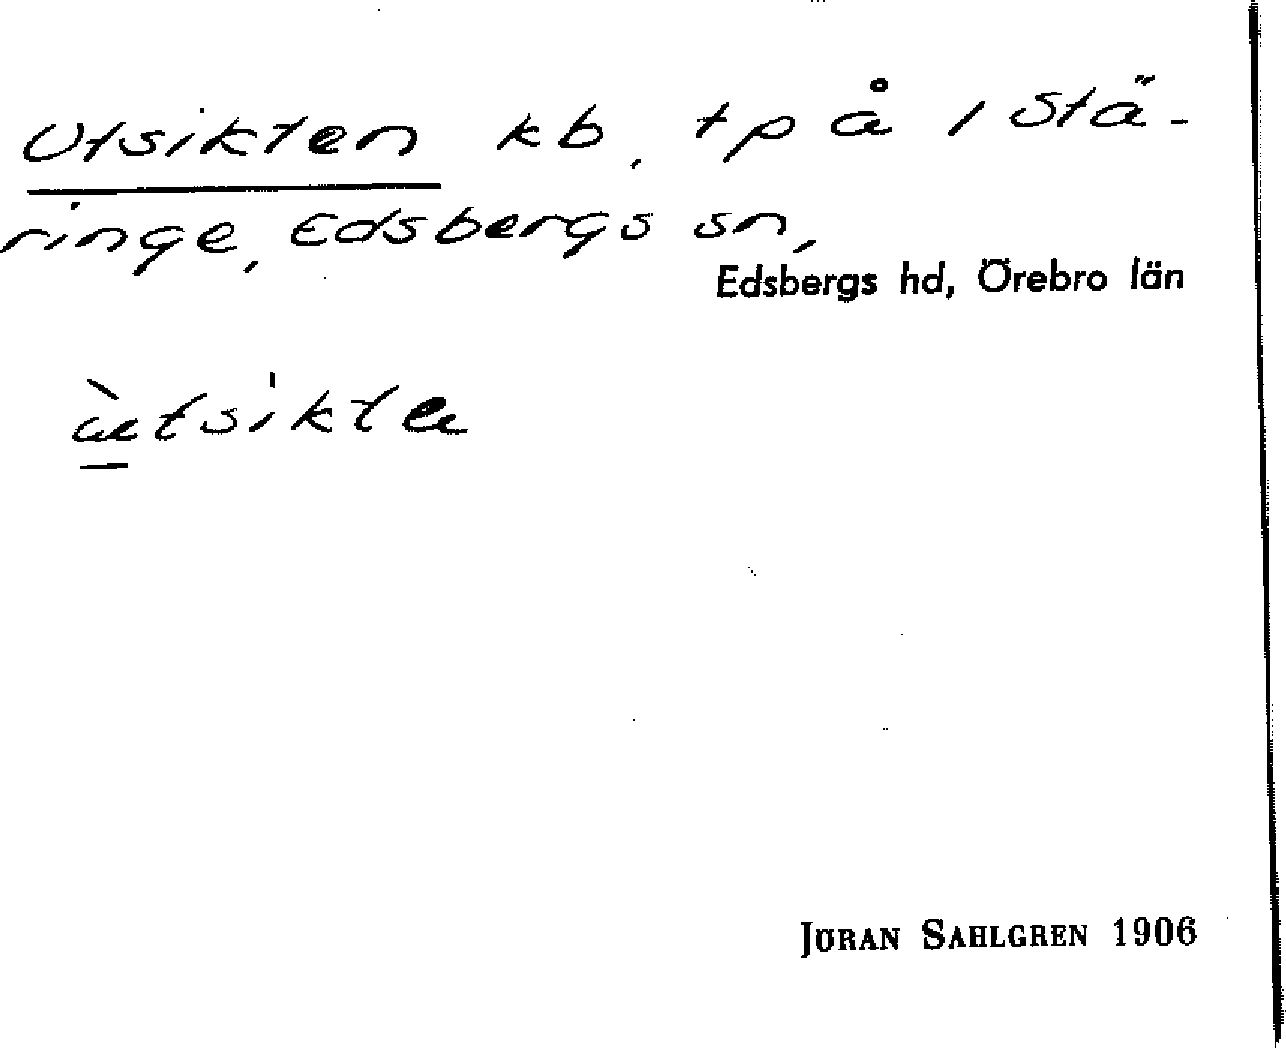 Utsikten kb, tp å 1 Stä-
ringe, Edsbergs sn,
Edsbergs hd, Örebro län
ùtsikta
JÖRAN SAHLGREN 1906